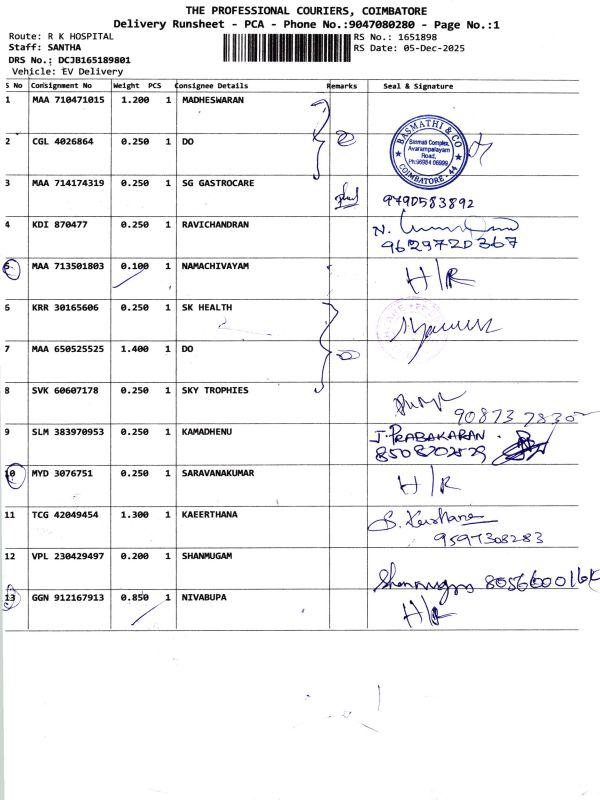 THE PROFESSIONAL COURIERS, COIMBATORE
Delivery Runsheet - PCA - Phone No.:9047080280 - Page No.:1
Route: R K HOSPITAL
RS No.: 1651898
Staff: SANTHA
RS Date: 05-Dec-2025
DRS No.: DCJB165189801
Vehicle: EV Delivery
S No Consignment No Weight PCS Consignee Details Remarks Seal & Signature
1 MAA 710471015 1.200 1 MADHESWARAN
2 CGL 4026864 0.250 1 DO
BASMATHI & CO
Basmati Complex,
Avarampalayam
Road,
Ph:96984 06999
COIMBATORE - 44
3 MAA 714174319 0.250 1 SG GASTROCARE
9790583892
4 KDI 870477 0.250 1 RAVICHANDRAN
N.
9629720367
5 MAA 713501803 0.100 1 NAMACHIVAYAM H/R
6 KRR 30165606 0.250 1 SK HEALTH
7 MAA 650525525 1.400 1 DO
8 SVK 60607178 0.250 1 SKY TROPHIES
9 SLM 383970953 0.250 1 KAMADHENU J. PRABAKARAN.
10 MYD 3076751 0.250 1 SARAVANAKUMAR H/R
11 TCG 42049454 1.300 1 KAEERTHANA
9597308283
12 VPL 230429497 0.200 1 SHANMUGAM
13 GGN 912167913 0.850 1 NIVABUPA H/R